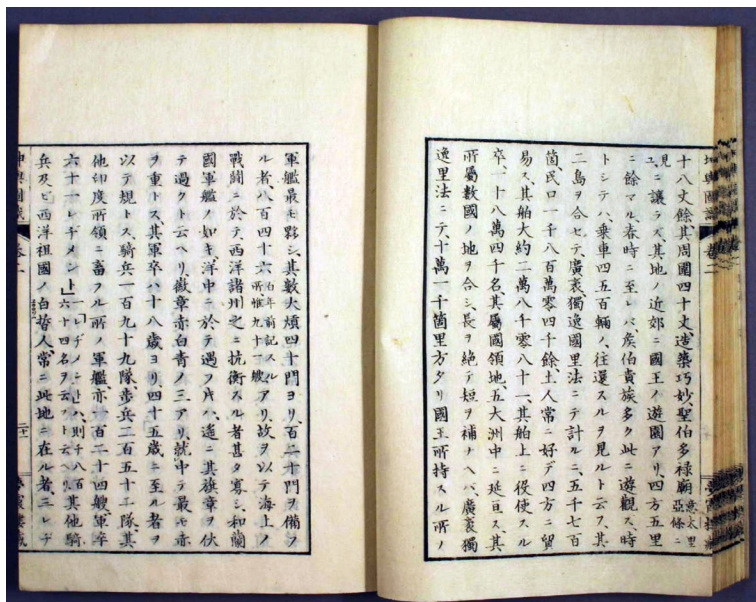 坤輿圖識 卷二
十八丈餘、其周圍四十丈、造築巧妙聖伯多祿廟意太里亞條ニ
見ユニ讓ラズ、其地ノ近郊ニ國王ノ遊園アリ、四方五里
ニ餘マル、春時ニ至レバ、矦伯貴族多ク此ニ遊觀ス、時
トシテハ、乗車四五百輛ノ、往還スルヲ見ルト云フ、其
二島ヲ合セテ、廣袤獨逸國里法ニテ計ルニ、五千七百
箇、民口一千八百萬零四千餘土人常ニ好テ四方ニ貿
易ス、其舶大約二萬八千零八十一、其舶上ニ役使スル
卒、一十八萬四千名、其屬國領地、五大洲中ニ延亘ス、其
所屬數國ノ地ヲ合シ、長ヲ絶テ短ヲ補ナヘバ、廣袤獨
逸里法ニテ、十萬一千箇里方タリ國王所持スル所ノ
軍艦最モ夥シ、其數大熕四十門ヨリ、百二十門ヲ備フ
ル者、八百四十六百年前記スル所惟九十一艘アリ、故ヲ以テ海上ノ
戰鬪ニ於テ、西洋諸州之ニ抗衡スル者甚タ寡シ、和蘭
國軍艦ノ如キ、洋中ニ於テ遇フ𪜈ハ、遥ニ其旗章ヲ伏
テ過クト云ヘリ、徽章赤白青ノ三アリ、就中テ最モ赤
ヲ重トス、其軍卒ハ十八歳ヨリ、四十五歳ニ至ル者ヲ
以テ規トス、騎兵一百九十九隊、歩兵二百五十二隊、其
他印度所領ニ畜フル所ノ軍艦亦一百二十四艘、軍卒
六十一レヂメント一レヂメントハ、則千八百六十四名ヲ云フト云ヘリ、其他騎
兵及ビ西洋祖國ノ白晳人、常ニ此地ニ在ル者、二レヂ
坤輿圖識 卷二